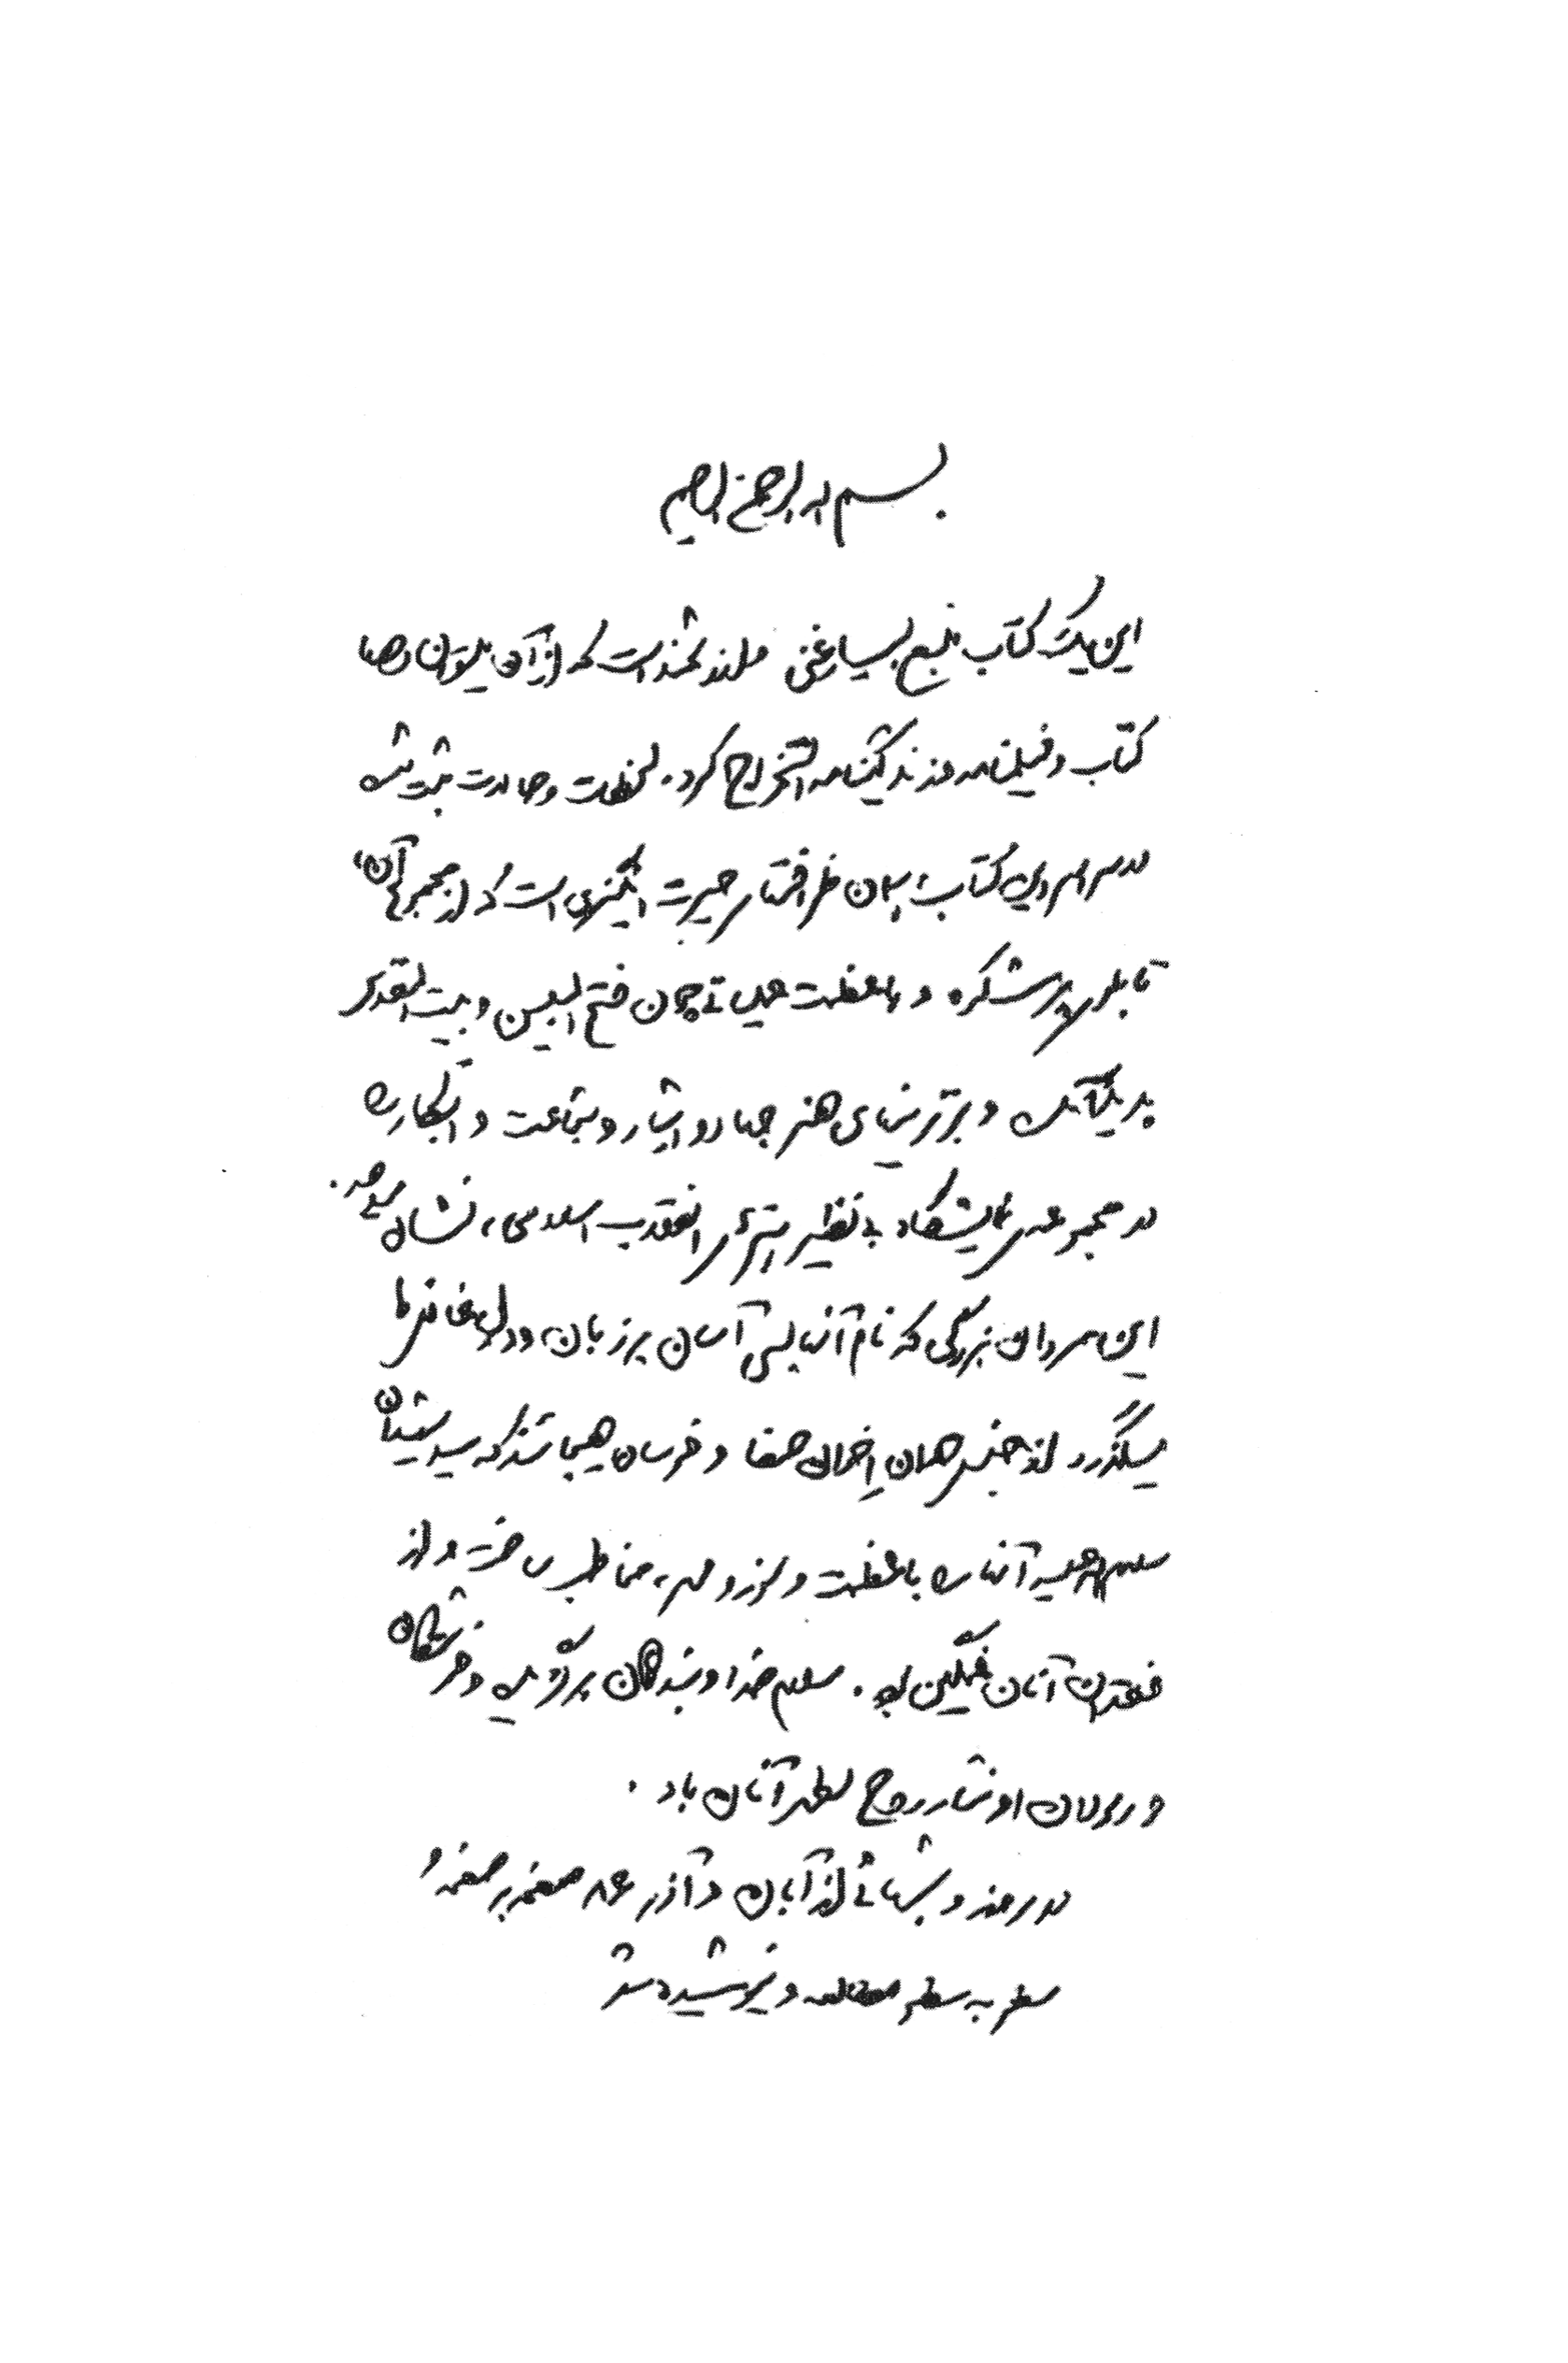 بسم الله الرحمن الرحیم
این یک کتاب منبع بسیار غنی و ارزشمند است که از آن میتوان دهها
کتاب و فیلمنامه و زندگینامه استخراج کرد. لحظات و حالات ثبت شده
در سراسر این کتاب، همان ظرافتهای حیرت انگیزی است که از مجموعه‌ی آن،
تابلوی پرشکوه و با عظمت عملیاتی چون فتح المبین و بیت المقدس
پدید آمده و برترینهای هنر جهاد و ایثار و شجاعت و ابتکار را
در مجموعه‌ی نمایشگاه بی نظیر هنرهای انقلاب اسلامی، نشان میدهد.
این سرداران بزرگی که نام آنها بس آسان بر زبان و دل غافل ما
میگذرد از جنس همان اخوان صفا و فرسان هیجا شدند که سید شهیدان
سلام الله علیه آنها را با عظمت و سوز و مهر، مخاطب ساخت و از
فقدان آنان غمگین بود. سلام خدا و بندگان برگزیده و فرشتگان
و رسولان او نثار روح مطهر آنان باد.
در روز و شبهائی از آبان و آذر ۶۸ صفحه به صفحه و
سطر به سطر مطالعه و نیوشیده شد